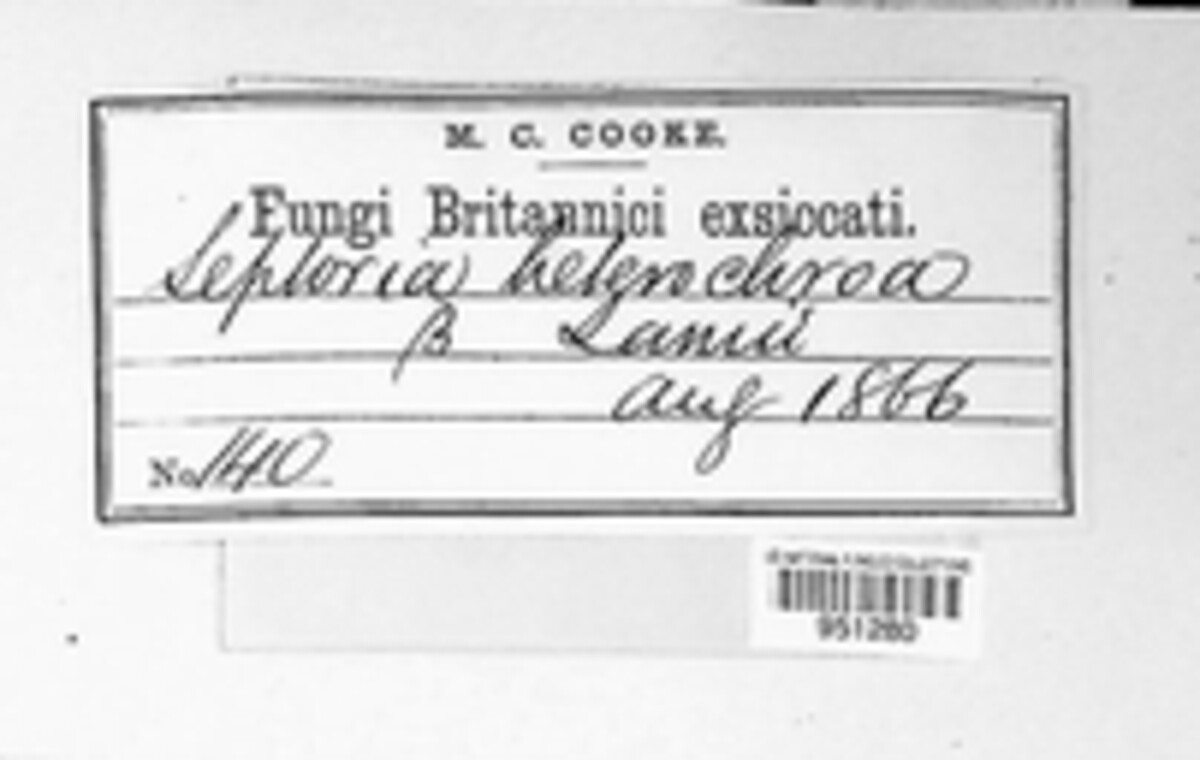 M. C. COOKE.
Fungi Britannici exsiccati.
Septoria heterochroa
β Lamii
Aug 1866
No. 140
951280